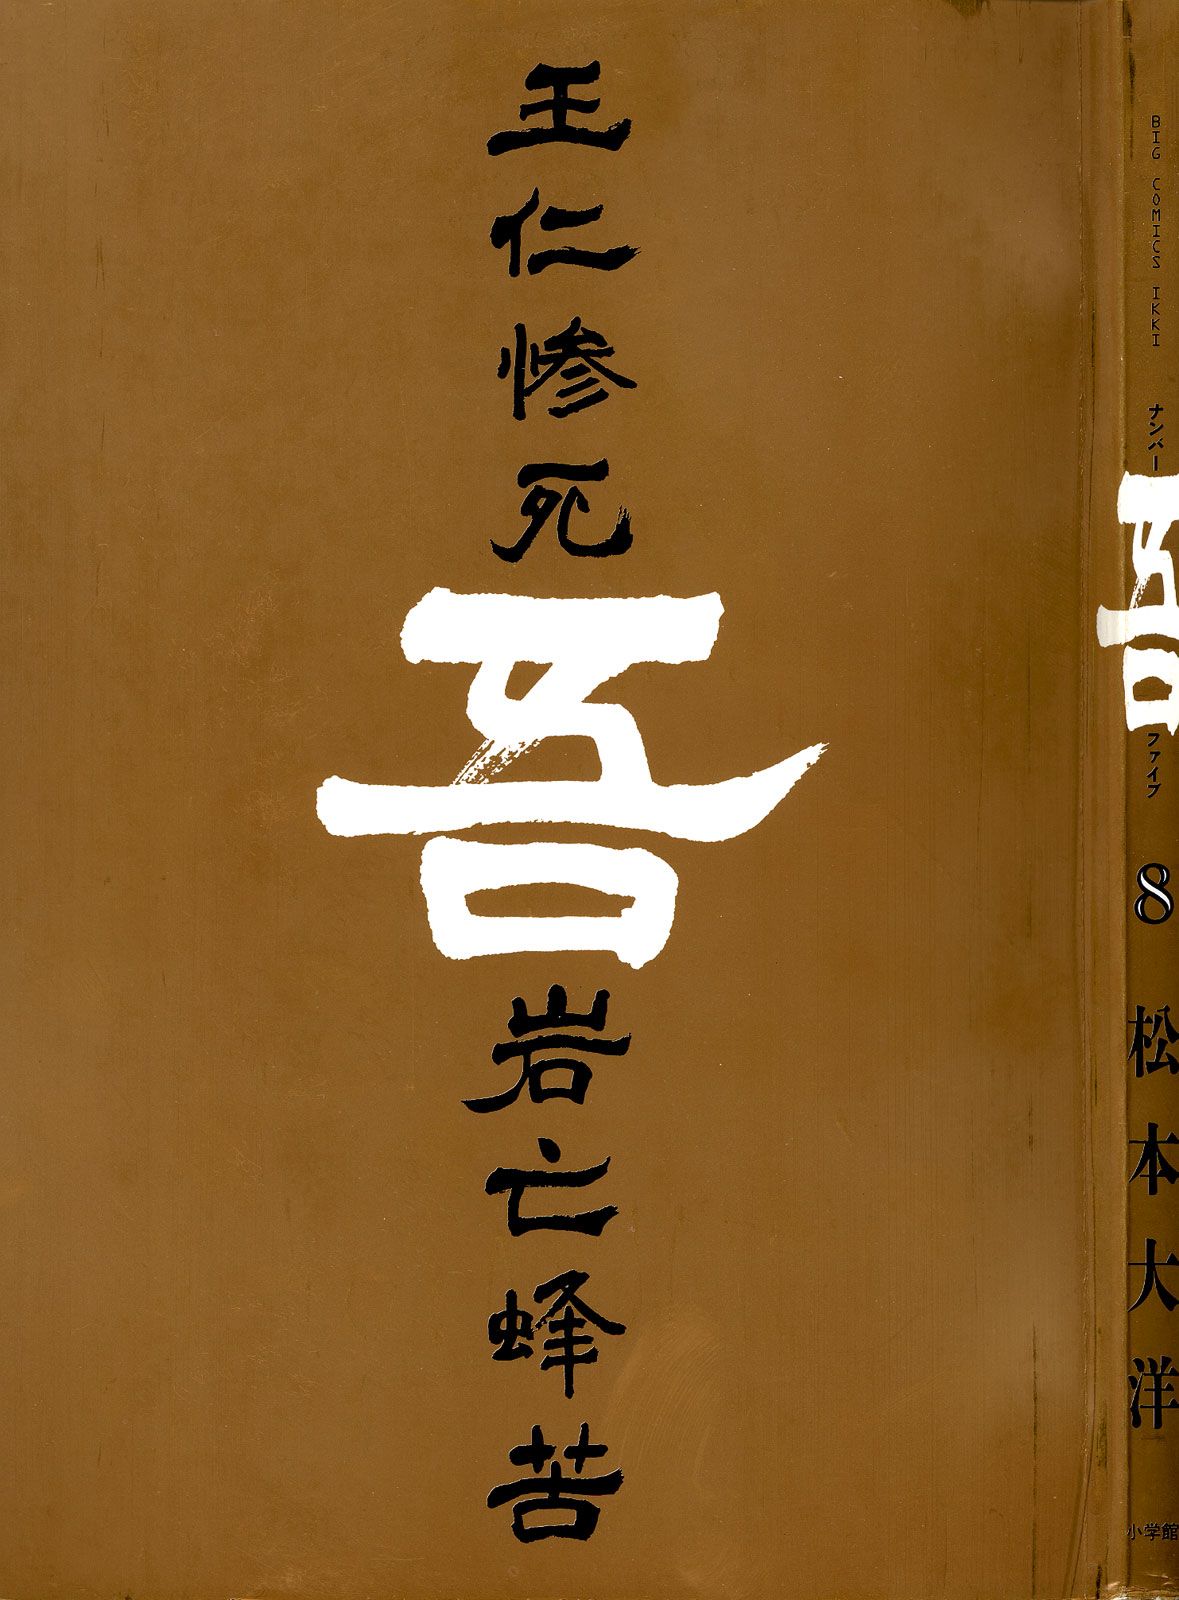 王仁惨死吾岩亡蜂苦
BIG COMICS IKKI
ナンバー吾ファイブ
8
松本大洋
小学館